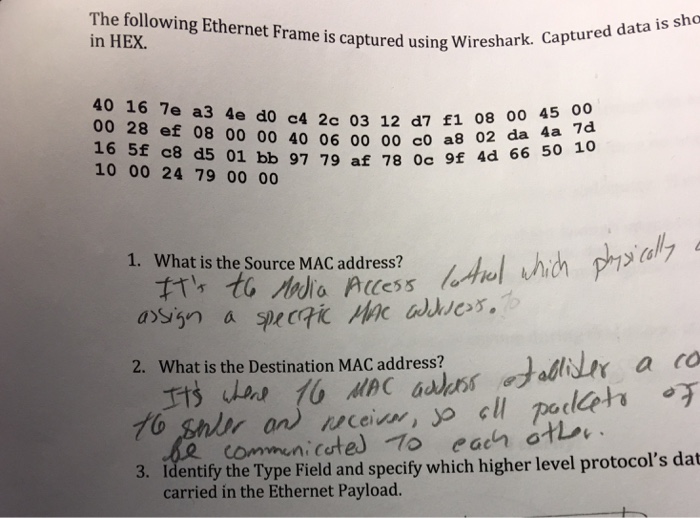 The following Ethernet Frame is captured using Wireshark. Captured data is sho
in HEX.
40 16 7e a3 4e d0 c4 2c 03 12 d7 f1 08 00 45 00
00 28 ef 08 00 00 40 06 00 00 c0 a8 02 da 4a 7d
16 5f c8 d5 01 bb 97 79 af 78 0c 9f 4d 66 50 10
10 00 24 79 00 00
1. What is the Source MAC address?
It's Media Access Control which physically
assign a specific MAC address.
2. What is the Destination MAC address?
It's where MAC address a co
and receiver, so all packets of
be communicated to each other.
3. Identify the Type Field and specify which higher level protocol's dat
carried in the Ethernet Payload.